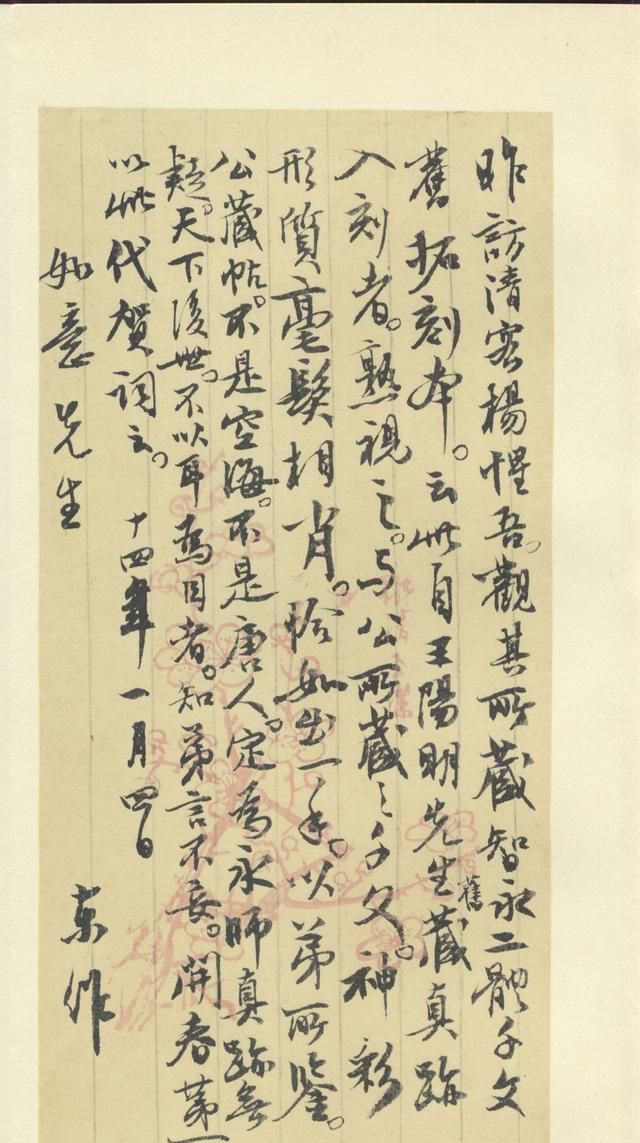 昨訪清客楊惺吾。觀其所藏智永二體千文
舊拓刻本。云此自王陽明先生舊藏真跡
入刻者。熟視之。与公所藏之千文。神彩
形質毫髮相肖。恰如出一手。以弟所鑒。
公藏帖。不是空海。不是唐人。定為永師真跡無
疑。天下後世。不以耳為目者。知弟言不妄。開春第一
以此代賀詞云。十四年一月四日
東作
如意先生